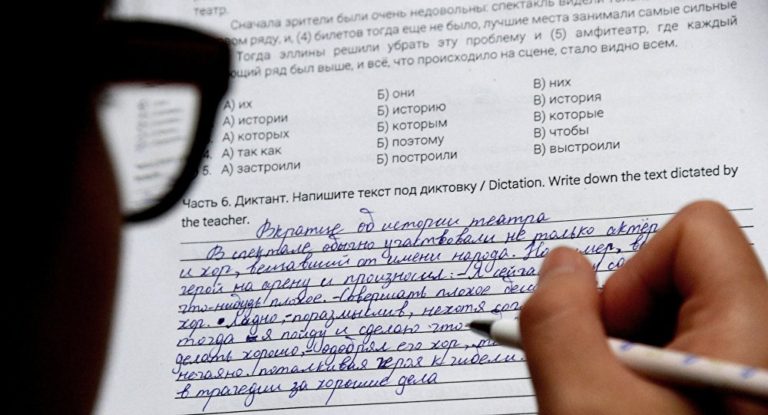 театр.
Сначала зрители были очень недовольны: спектакль видели
ом ряду, и, (4) билетов тогда еще не было, лучшие места занимали самые сильные
Тогда эллины решили убрать эту проблему и (5) амфитеатр, где каждый
ющий ряд был выше, и всё, что происходило на сцене, стало видно всем.
А) их Б) они В) них
А) истории Б) историю В) история
А) которых Б) которым В) которые
4. А) так как Б) поэтому В) чтобы
5. А) застроили Б) построили В) выстроили
Часть 6. Диктант. Напишите текст под диктовку / Dictation. Write down the text dictated by
the teacher.
Вкратце об истории театра
В спектакле обычно участвовали не только актёр
и хор, вещавший от имени народа. На мер, в
герой на арену и произносил: - Я сейча
что-нибудь плохое. - Совершать плохое
хор. - Ладно, - поразмыслив, нехотя сог
тогда я пойду и сделаю что-
делать хорошо, - одобрял его хор,
нечаяно поталкивая героя к гибели.
в трагедии за хорошие дела